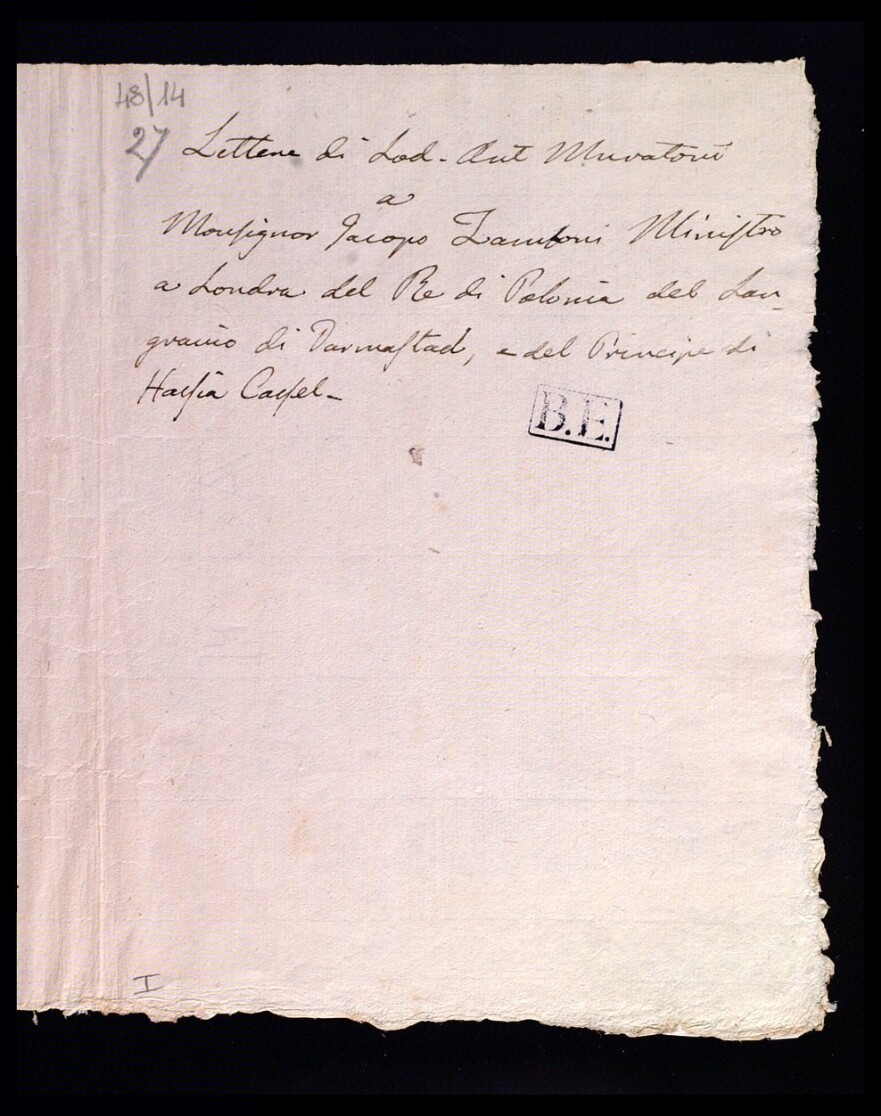 48/14
27 Lettere di Lod. Ant Muratori
a
Monsignor Jacopo Zamboni Ministro
a Londra del Re di Polonia del Lan-
gravio di Darmastad, e del Principe di
Hassia Cassel-
B.E.
I